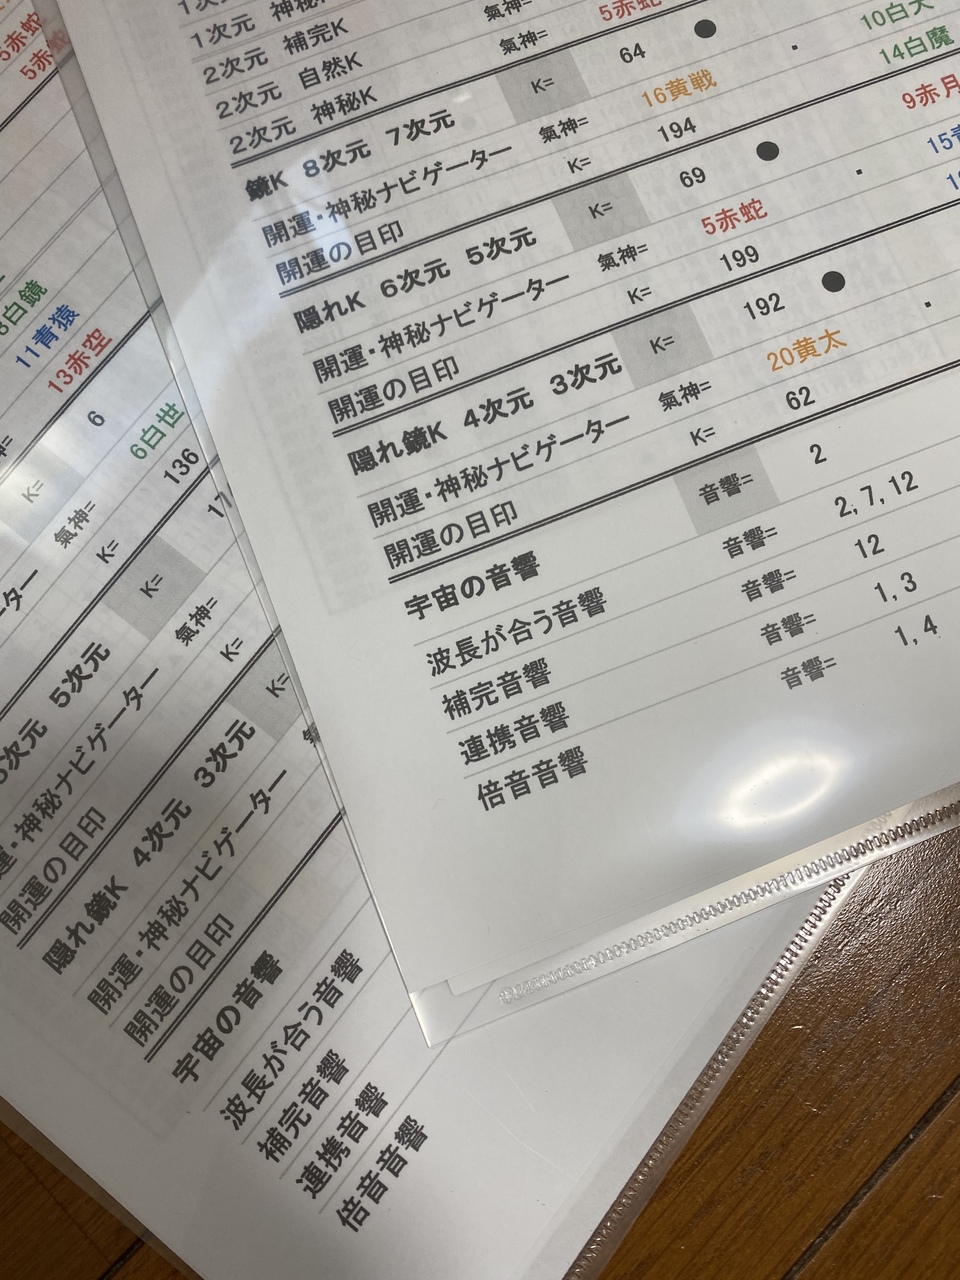 1次元 神秘K
2次元 補完K 氣神=
2次元 自然K 氣神= 5赤蛇
2次元 神秘K
鏡K 8次元 7次元 K= 64 ● ・ 10白犬
開運・神秘ナビゲーター 氣神= 16黄戦 14白魔
開運の目印 K= 194
隠れK 6次元 5次元 K= 69 ● ・ 9赤月
開運・神秘ナビゲーター 氣神= 5赤蛇
開運の目印 K= 199
隠れ鏡K 4次元 3次元 K= 192 ● ・
開運・神秘ナビゲーター 氣神= 20黄太
開運の目印 K= 62
宇宙の音響 音響= 2
波長が合う音響 音響= 2, 7, 12
補完音響 音響= 12
連携音響 音響= 1, 3
倍音音響 音響= 1, 4
5赤蛇
8白鏡
11青猿
13赤空
K= 6
氣神= 6白世
K= 136
5次元 K= 17
神秘ナビゲーター 氣神=
開運の目印 K=
隠れ鏡K 4次元 3次元 K=
開運・神秘ナビゲーター
開運の目印
宇宙の音響
波長が合う音響
補完音響
連携音響
倍音音響